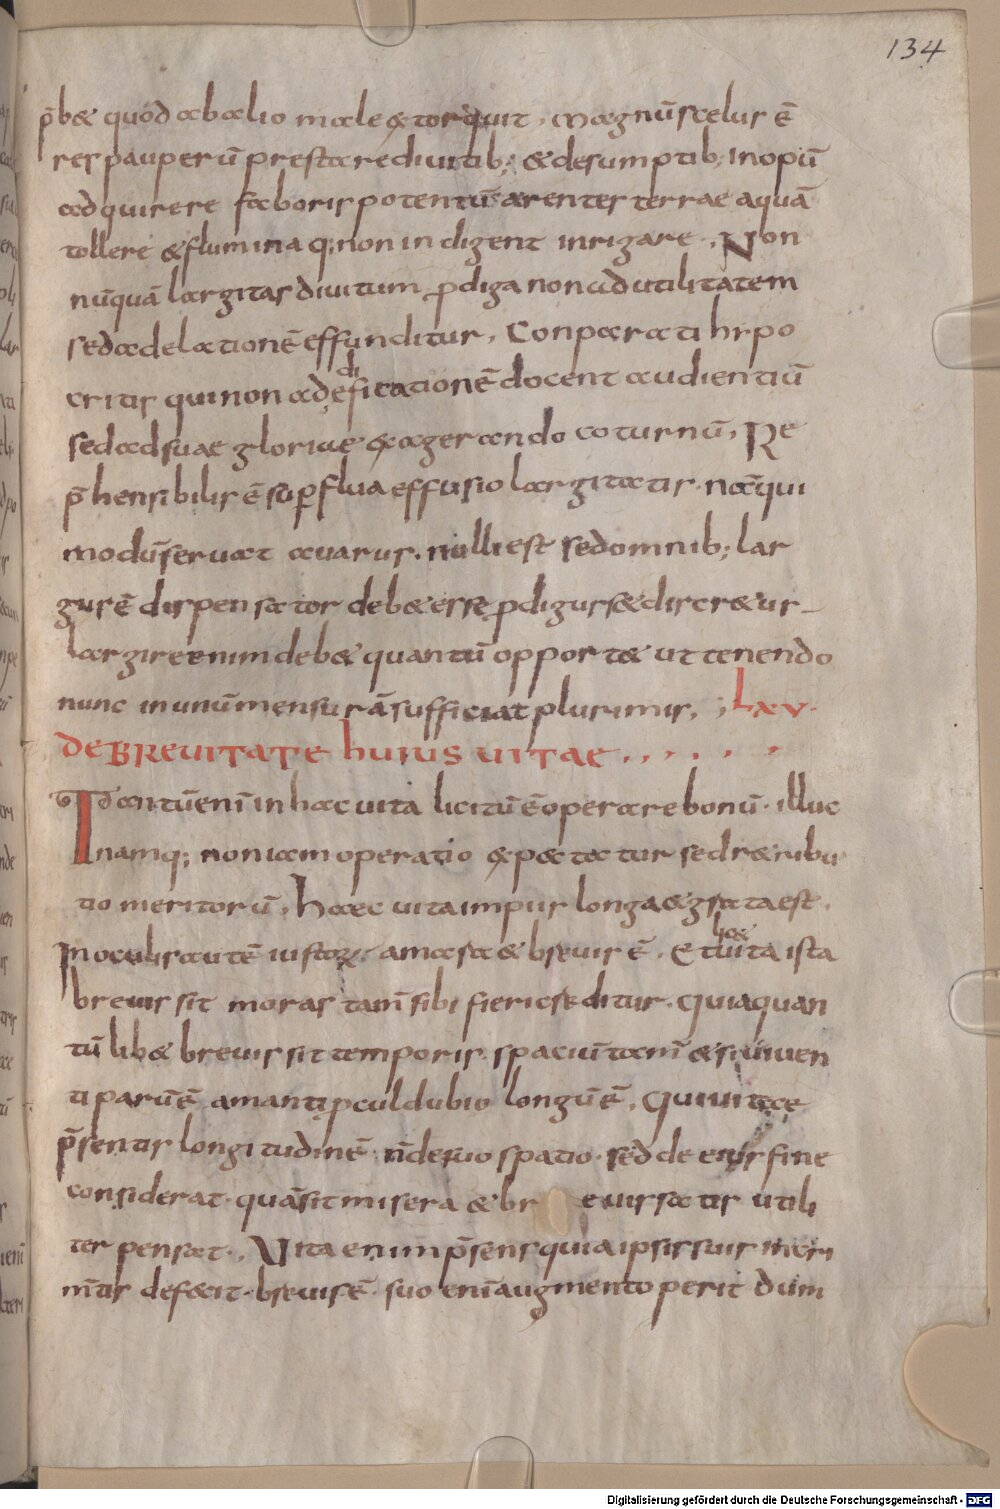 134
p̄b& quod ab alio male extorquit. Magnū scelus ē
res pauperū prestare diuitib; & desumptib; inopū
adquirere fauoris potentū arentes terrae aquā
tollere & flumina q; non indigent inrigare. Non
nūquā largitas diuitum ꝓdiga non ad utilitatem
sed ad elationē effunditur. Conparati hypo
critis qui non ad edificationē docent audientiū
sed ad suae gloriae exagerando coturnū. Re
p̄hensibilis ē sup̄flua effusio largitatis. nā qui
modū seruat auarus. nulli est sed omnib; lar
gus ē dispensator deb& esse ꝓdigus s& discr&us
largire enim deb& quantū opport& ut tenendo
nunc in unū mensurā sufficiat plurimis,; LXV.
DE BREVITATE HUIUS VITAE
Tantū enī in hac uita licitū ē operare bonū. illuc
namq; non iam operatio expectatur sed r&ribu
tio meritorū. Haec uita impiis longa & grata est.
In oculis autē iustorꝝ amara & breuis ē. Et lic& uita ista
breuis sit moras tam̄ sibi fieri creditur. Quia quan
tū lib& breuis sit temporis spaciū tam̄ & si uiuen
ti parū ē amanti ꝓcul dubio longū ē. Qui uitae
p̄sentis longitudinē n̄ de suo spatio. sed de eius fine
considerat. quā sit misera & br euis satis utili
ter pensat. Vita enim p̄sens quia ipsis suis
m̄tis deficit. breuis ē. suo enī augmento perit dum
Digitalisierung gefördert durch die Deutsche Forschungsgemeinschaft - DFG